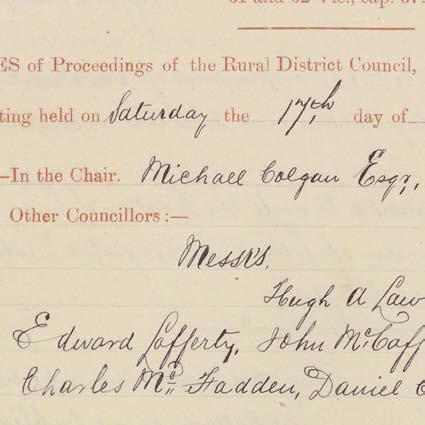 61 and 62 Vic., cap. 37.
ES of Proceedings of the Rural District Council,
ting held on Saturday the 17th day of
—In the Chair. Michael Colgan Esqr,
Other Councillors :—
Messrs.
Hugh A Law
Edward Lafferty, John McCaff
Charles McFadden, Daniel